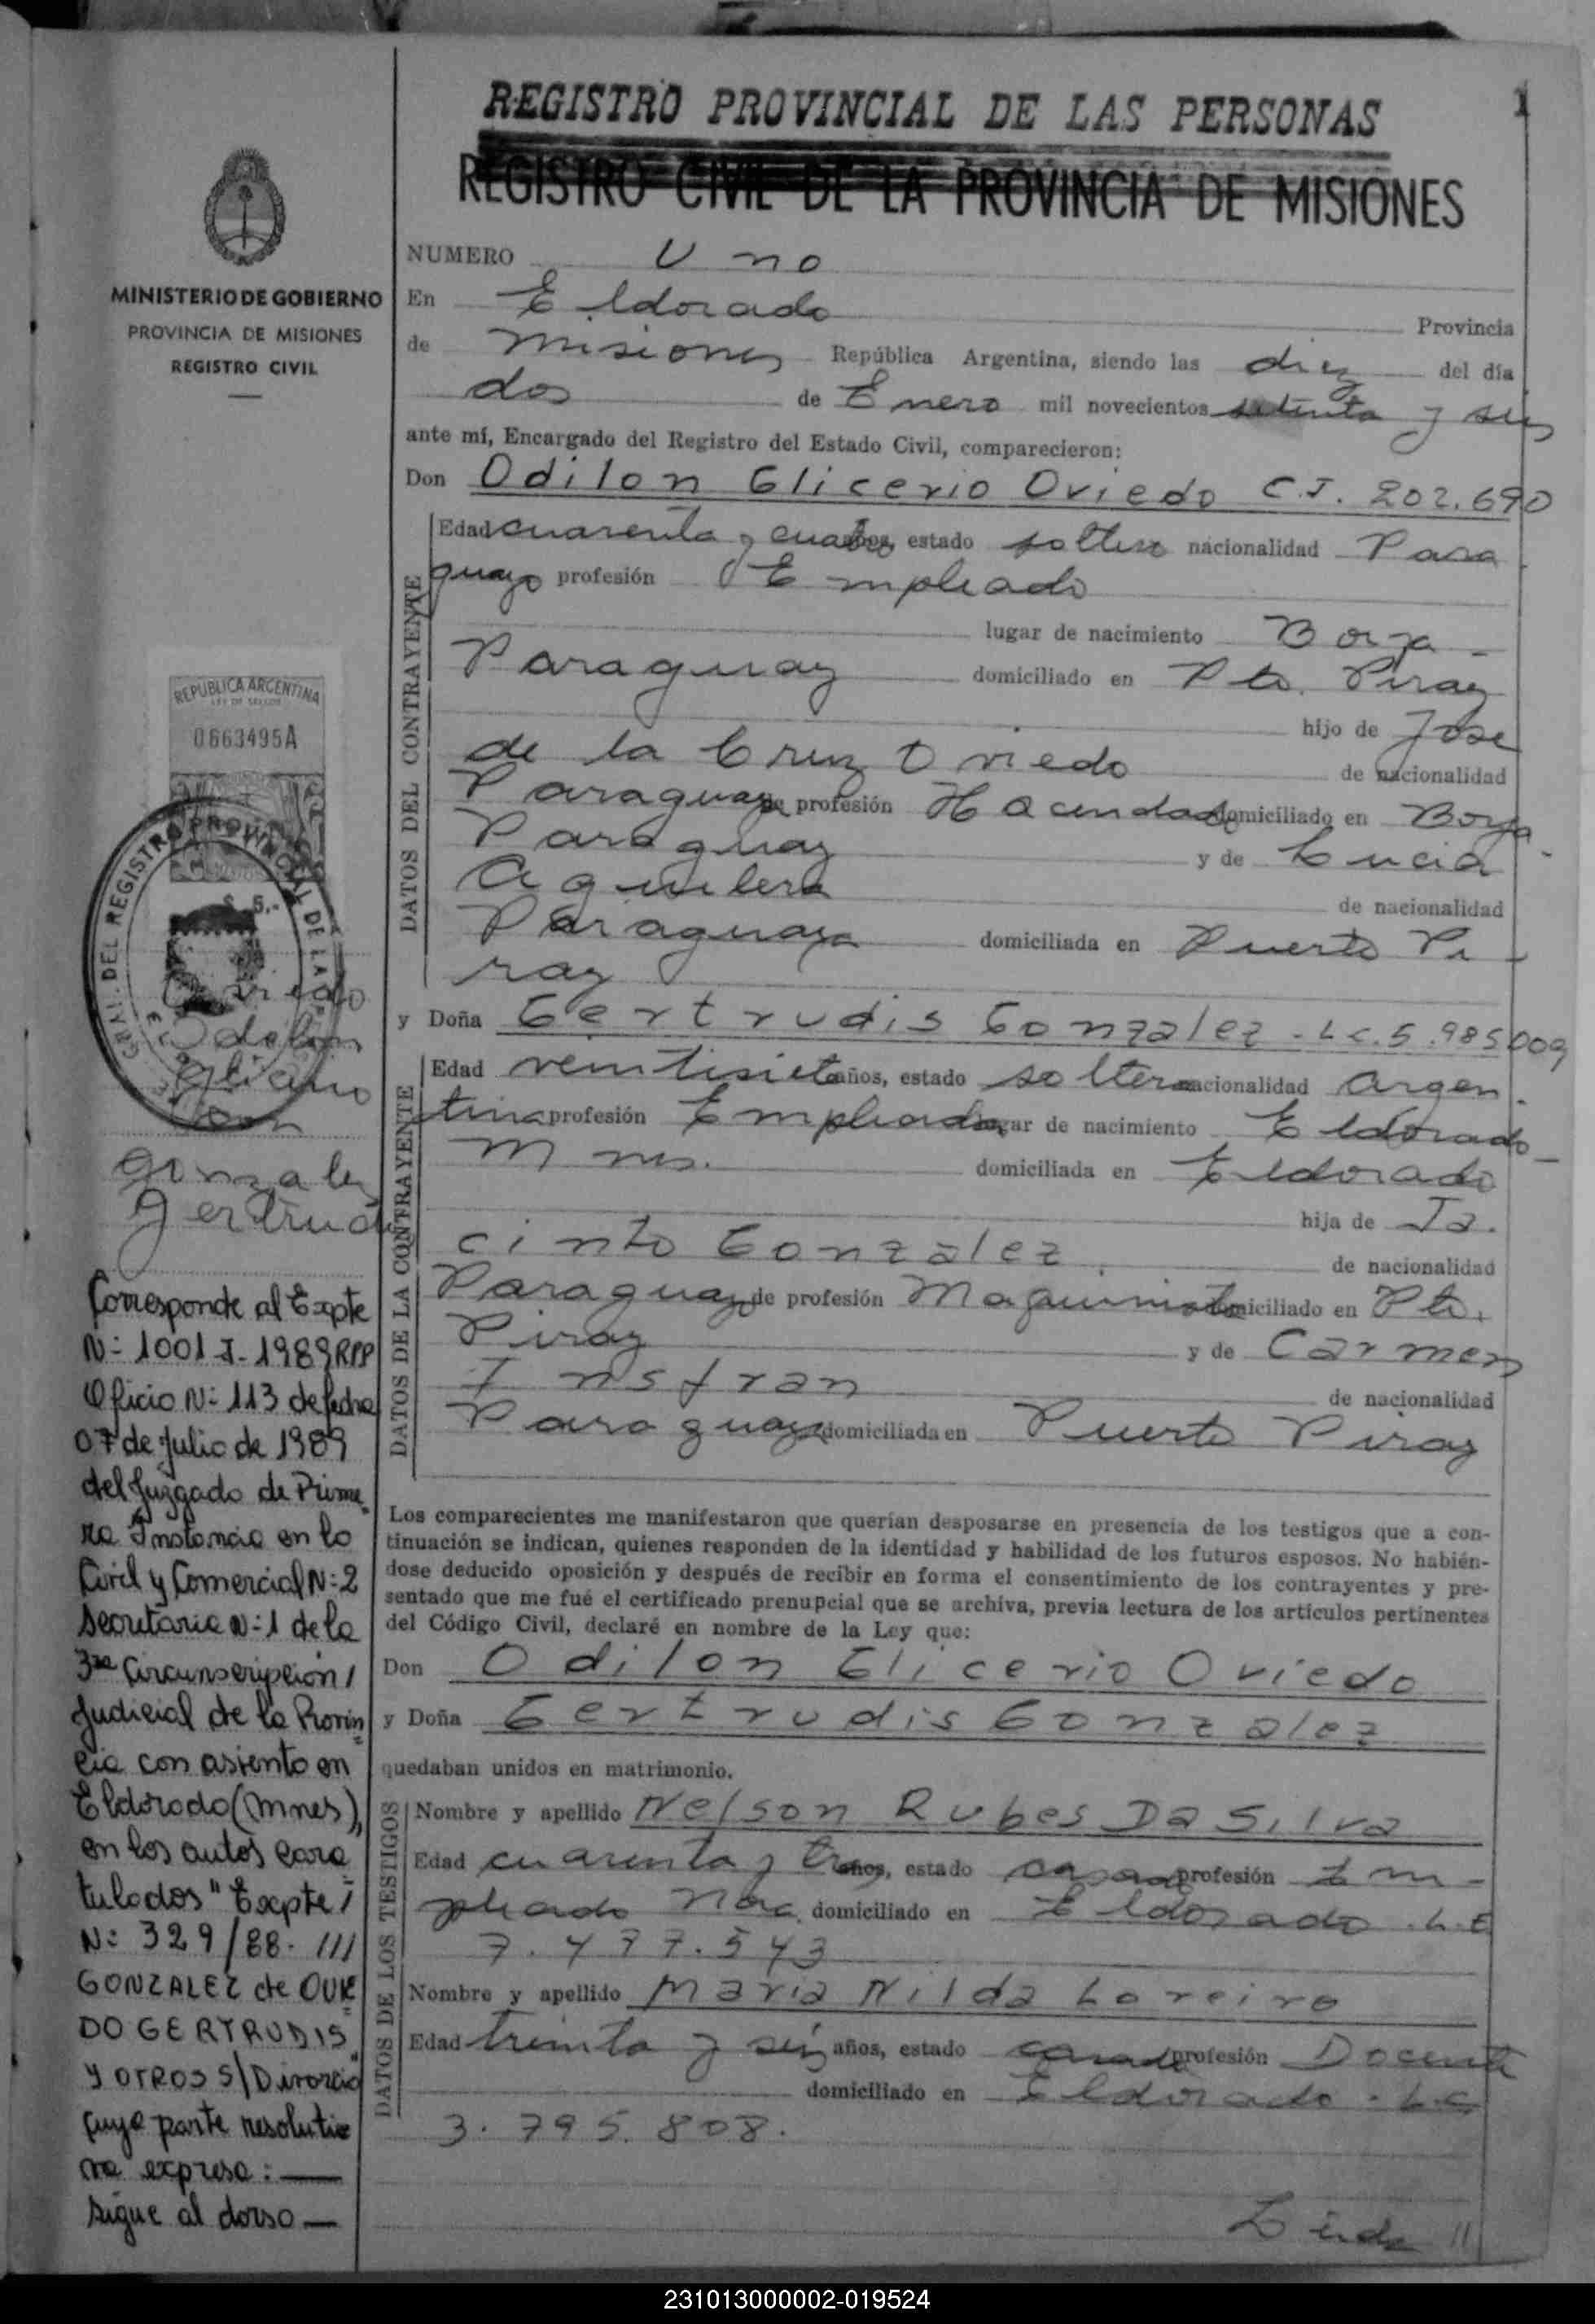 1
REGISTRO PROVINCIAL DE LAS PERSONAS
REGISTRO CIVIL DE LA PROVINCIA DE MISIONES
MINISTERIO DE GOBIERNO
PROVINCIA DE MISIONES
REGISTRO CIVIL
NUMERO Uno
En Eldorado Provincia
de Misiones República Argentina, siendo las diez del día
dos de Enero mil novecientos setenta y seis
ante mí, Encargado del Registro del Estado Civil, comparecieron:
Don Odilon Glicerio Oviedo C.I. 202.690
DATOS DEL CONTRAYENTE
Edad cuarenta y cuatro años, estado soltero nacionalidad Para
guayo profesión Empleado
lugar de nacimiento Borja -
Paraguay domiciliado en Pto. Piray
hijo de Jose
de la Cruz Oviedo de nacionalidad
Paraguaya de profesión Hacendado domiciliado en Borja -
Paraguay y de Lucia
Aguilera de nacionalidad
Paraguaya domiciliada en Puerto Pi -
ray
y Doña Gertrudis Gonzalez - L.C. 5.985009
DATOS DE LA CONTRAYENTE
Edad veintisiete años, estado soltera nacionalidad Argen -
tina profesión Empleada lugar de nacimiento Eldorado -
Mnes. domiciliada en Eldorado
hija de Ja -
cinto Gonzalez de nacionalidad
Paraguayo de profesión Maquinista domiciliado en Pto.
Piray y de Carmen
Insfran de nacionalidad
Paraguaya domiciliada en Puerto Piray
Los comparecientes me manifestaron que querían desposarse en presencia de los testigos que a con-
tinuación se indican, quienes responden de la identidad y habilidad de los futuros esposos. No habién-
dose deducido oposición y después de recibir en forma el consentimiento de los contrayentes y pre-
sentado que me fué el certificado prenupcial que se archiva, previa lectura de los artículos pertinentes
del Código Civil, declaré en nombre de la Ley que:
Don Odilon Glicerio Oviedo
y Doña Gertrudis Gonzalez
quedaban unidos en matrimonio.
DATOS DE LOS TESTIGOS
Nombre y apellido Nelson Rubes Da Silva
Edad cuarenta y tres años, estado casado profesión Em -
pleado Nac. domiciliado en Eldorado . L.E
7.477.543
Nombre y apellido Maria Nilda Loreiro
Edad treinta y seis años, estado casada profesión Docente
domiciliado en Eldorado . L.C
3.795.808.
REPUBLICA ARGENTINA
LEY DE SELLOS
0663495A
$ 5.-
GRAL. DEL REGISTRO PROVINCIAL DE LAS
Oviedo
Odilon
Glicerio
con
Gonzalez
Gertrudis
Corresponde al Expte
N: 1001-I-1989 RPP
Oficio N: 113 de fecha
07 de Julio de 1989
del Juzgado de Prime
ra Instancia en lo
Civil y Comercial N: 2
Secretaria N: 1 de la
3ra Circunscripción /
Judicial de la Provin
cia con asiento en
Eldorado (Mnes),
en los autos cara
tulados "Expte /
N: 329/88. ///
GONZALEZ de OVIE
DO GERTRUDIS
Y OTROS S/Divorcio
cuya parte resoluti
va expresa: —
Sigue al dorso —
231013000002-019524